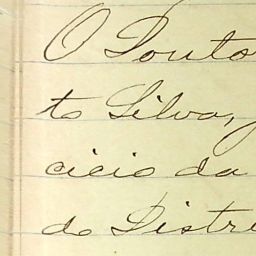 O Douto
to Silva,
cicio da
do Distri